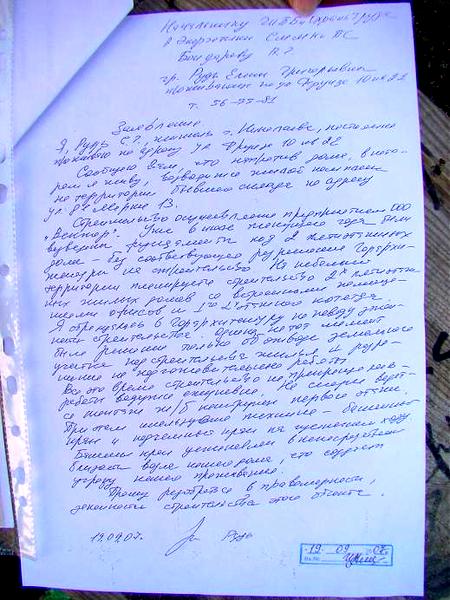 Начальнику
и энергетики
Бондареву
гр. Рудь Елены Григорьевны
проживающей по ул Фрунзе
т. 56-77-81
Заявление
Я, Рудь Е.Г. житель г. Николаева, постоянно
проживаю по адресу ул Фрунзе
Сообщаю Вам, что напротив дома, в кото-
ром я живу, возводится жилой комплекс
на территории бывшего склада по адресу
ул. 8 Марта 13.
Строительство осуществляет предприятие ООО
Уже в июле текущего года были
выведены фундаменты под 2 пятиэтажных
дома - без соответствующего разрешения Горархи-
тектуры на строительство. На небольшой
территории планируется строительство 2х пятиэтаж-
ных жилых домов со встроенными помеще-
ниями офисов и этажного коттеджа.
Я обращалась в Горархитектуру по поводу закон-
ности строительства, однако на тот момент
было решение только об отводе земельного
участка под строительство жилья, а разре-
шение не
Все это время строительство не прекращалось
работы ведутся ежедневно. На сегодня ведет-
ся монтаж ж/б конструкций первого этажа.
При этом используют технику - башенный
кран и подъемный кран на гусеничном ходу.
Башенный кран установлен в непосредственной
близости возле нашего дома, что создает
угрозу нашего проживания.
Прошу разобраться в правомерности,
законности строительства этого объекта.
19.09.07. Рудь
19 09 07